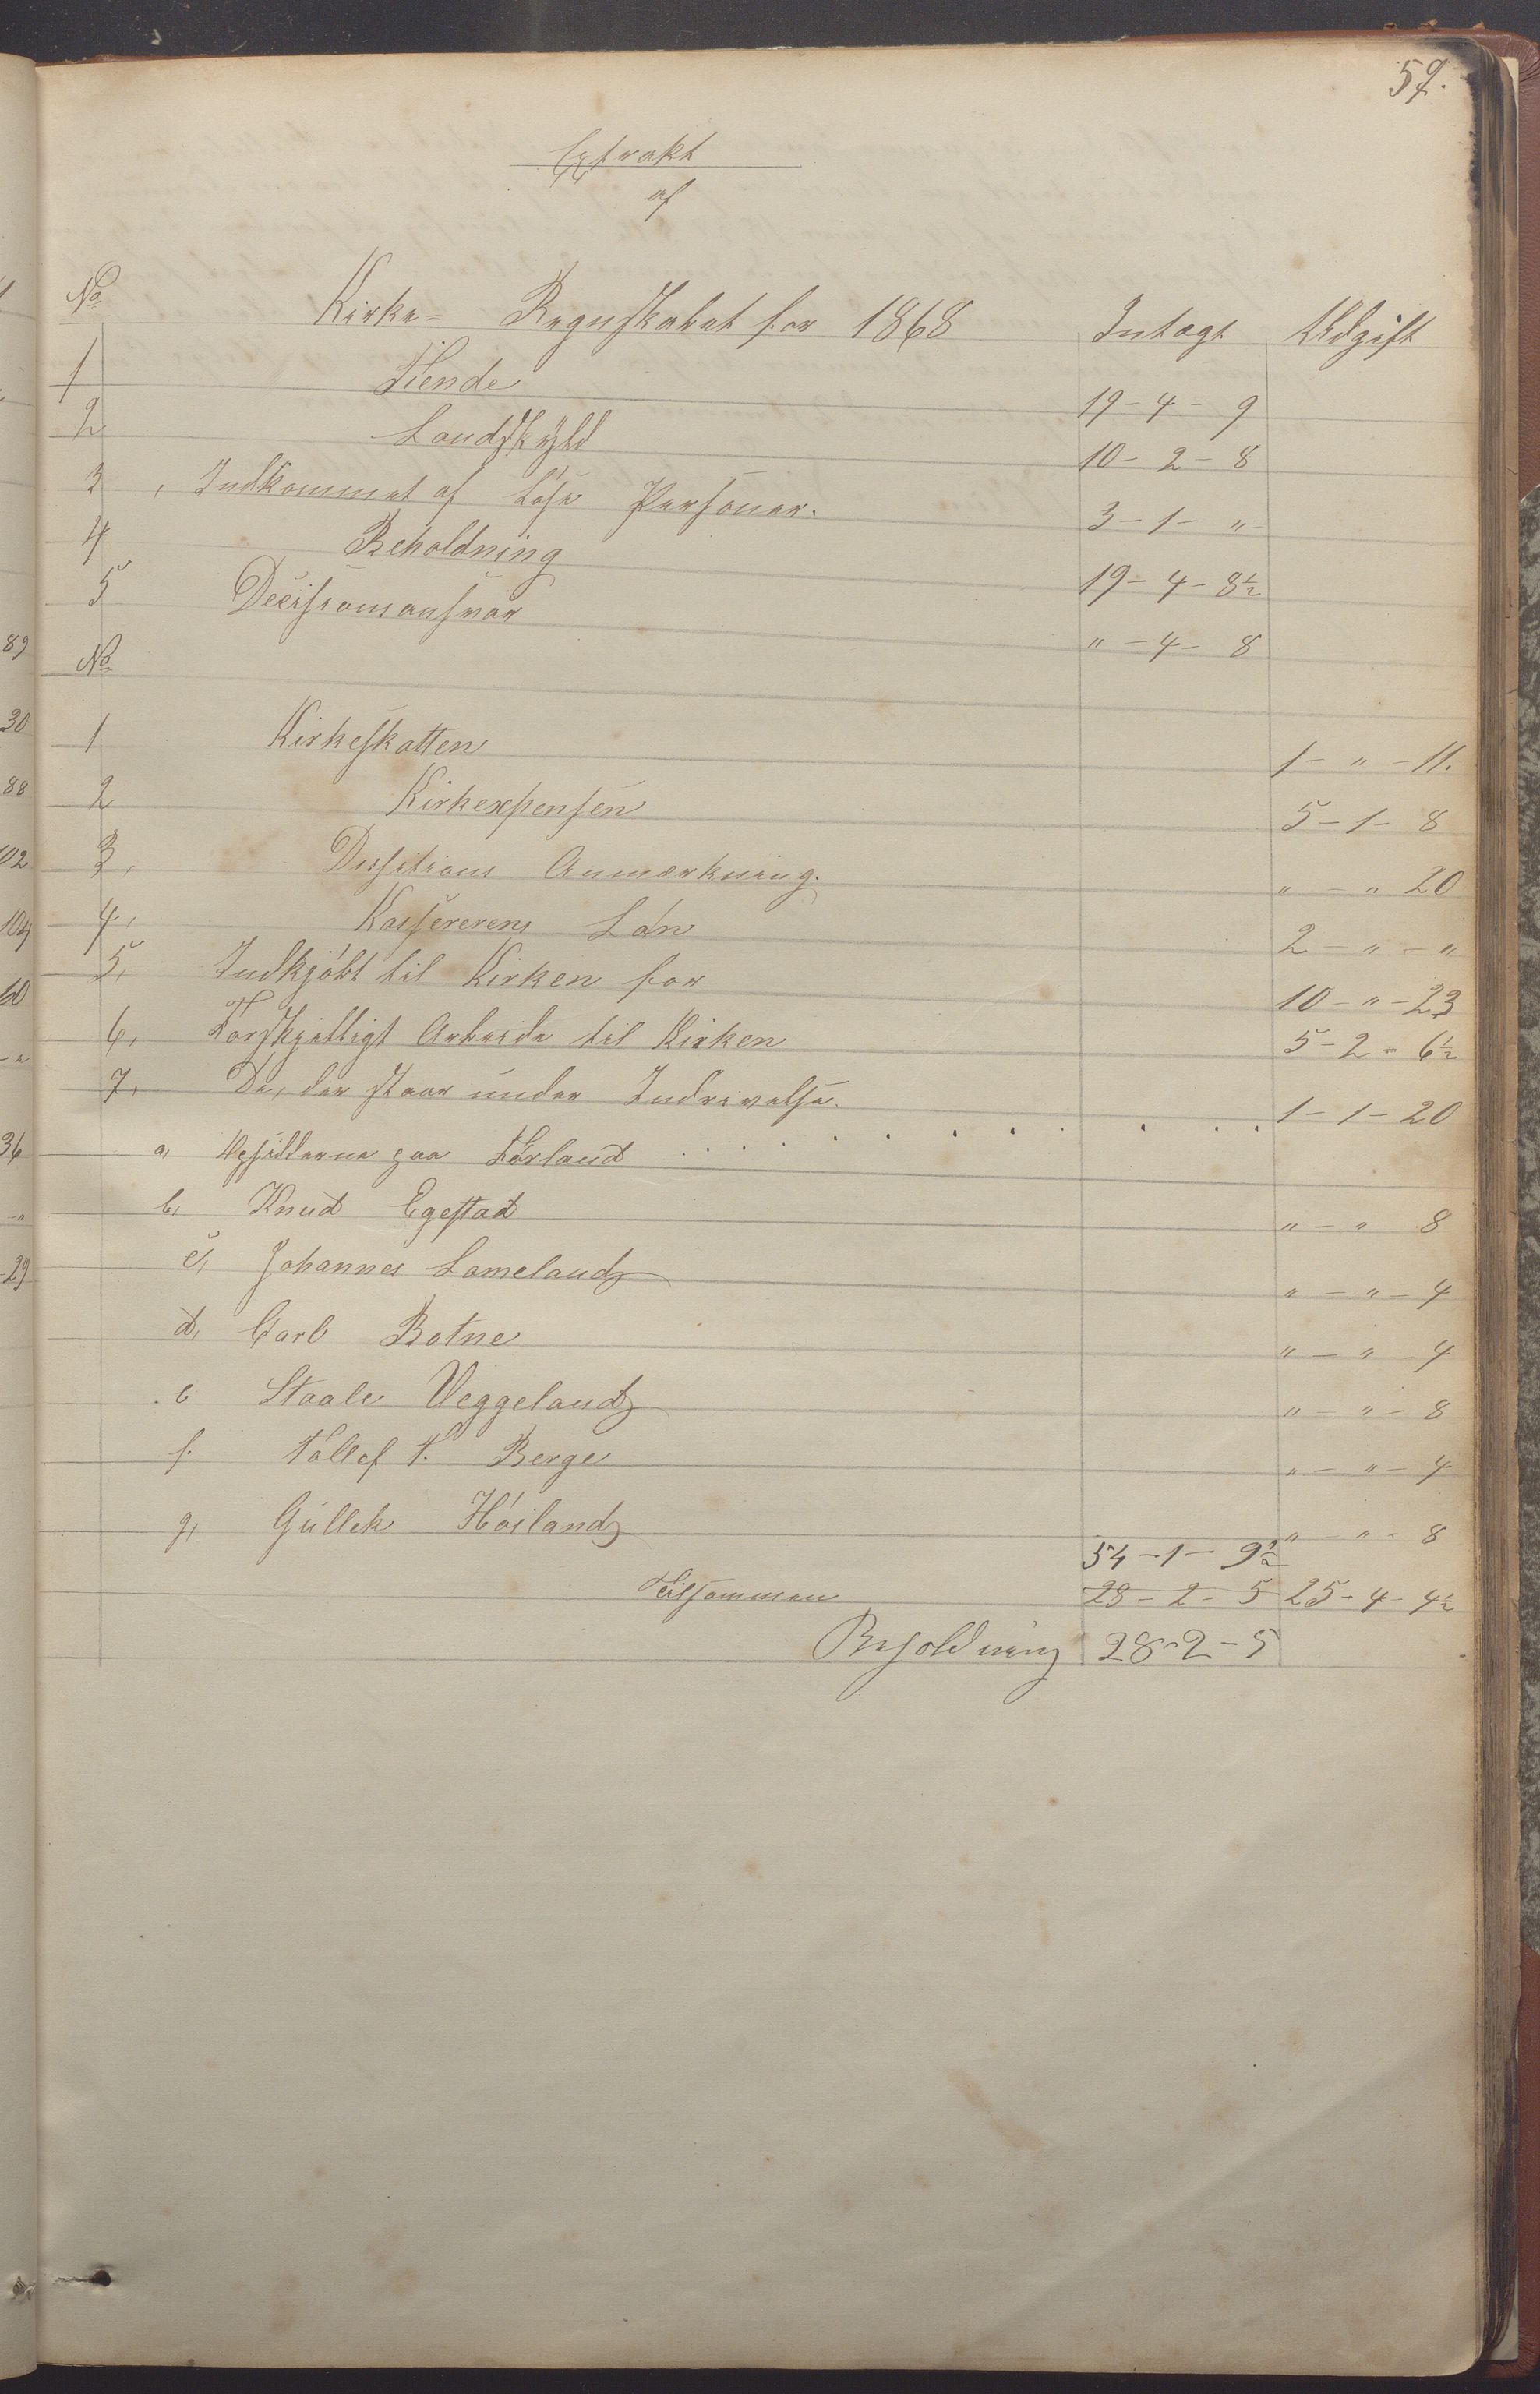 59.
Extrakt
af
No Kirke= Regnskabet for 1868 Intægt Udgift
1 Tiende 19 - 4 - 9
2 Landskyld 10 - 2 - 8
3, Indkommet af Løse Personer. 3 - 1 - "
4 Beholdning 19 - 4 - 8½
5 Decisionsansvar " - 4 - 8
No
1 Kirkeskatten 1 - " - 11.
2 Kirkexpensen 5 - 1 - 8
3, Desitions Anmærkning. " - " 20
4, Kassererens Løn 2 - " - "
5, Indkjøbt til Kirken for 10 - " - 23
6, Forskjelligt Arbeide til Kirken 5 - 2 - 6½
7, De, der staar under Indrivelse. 1 - 1 - 20
a, Opsidderne paa Førland . . . . . . . . . . . .
b, Knud Egestad " - " 8
c, Johannes Lomeland " - " - 4
d, Carl Botne " - " - 4
e Staale Veggeland " - " - 8
f. Tollef T. Berge " - " - 4
g, Gullek Høiland " - " - 8
54 - 1 - 9½
Tilsammen 28 - 2 - 5 25 - 4 - 4½
Beholdning 28 - 2 - 5
89
30
88
102
104
60
36
29